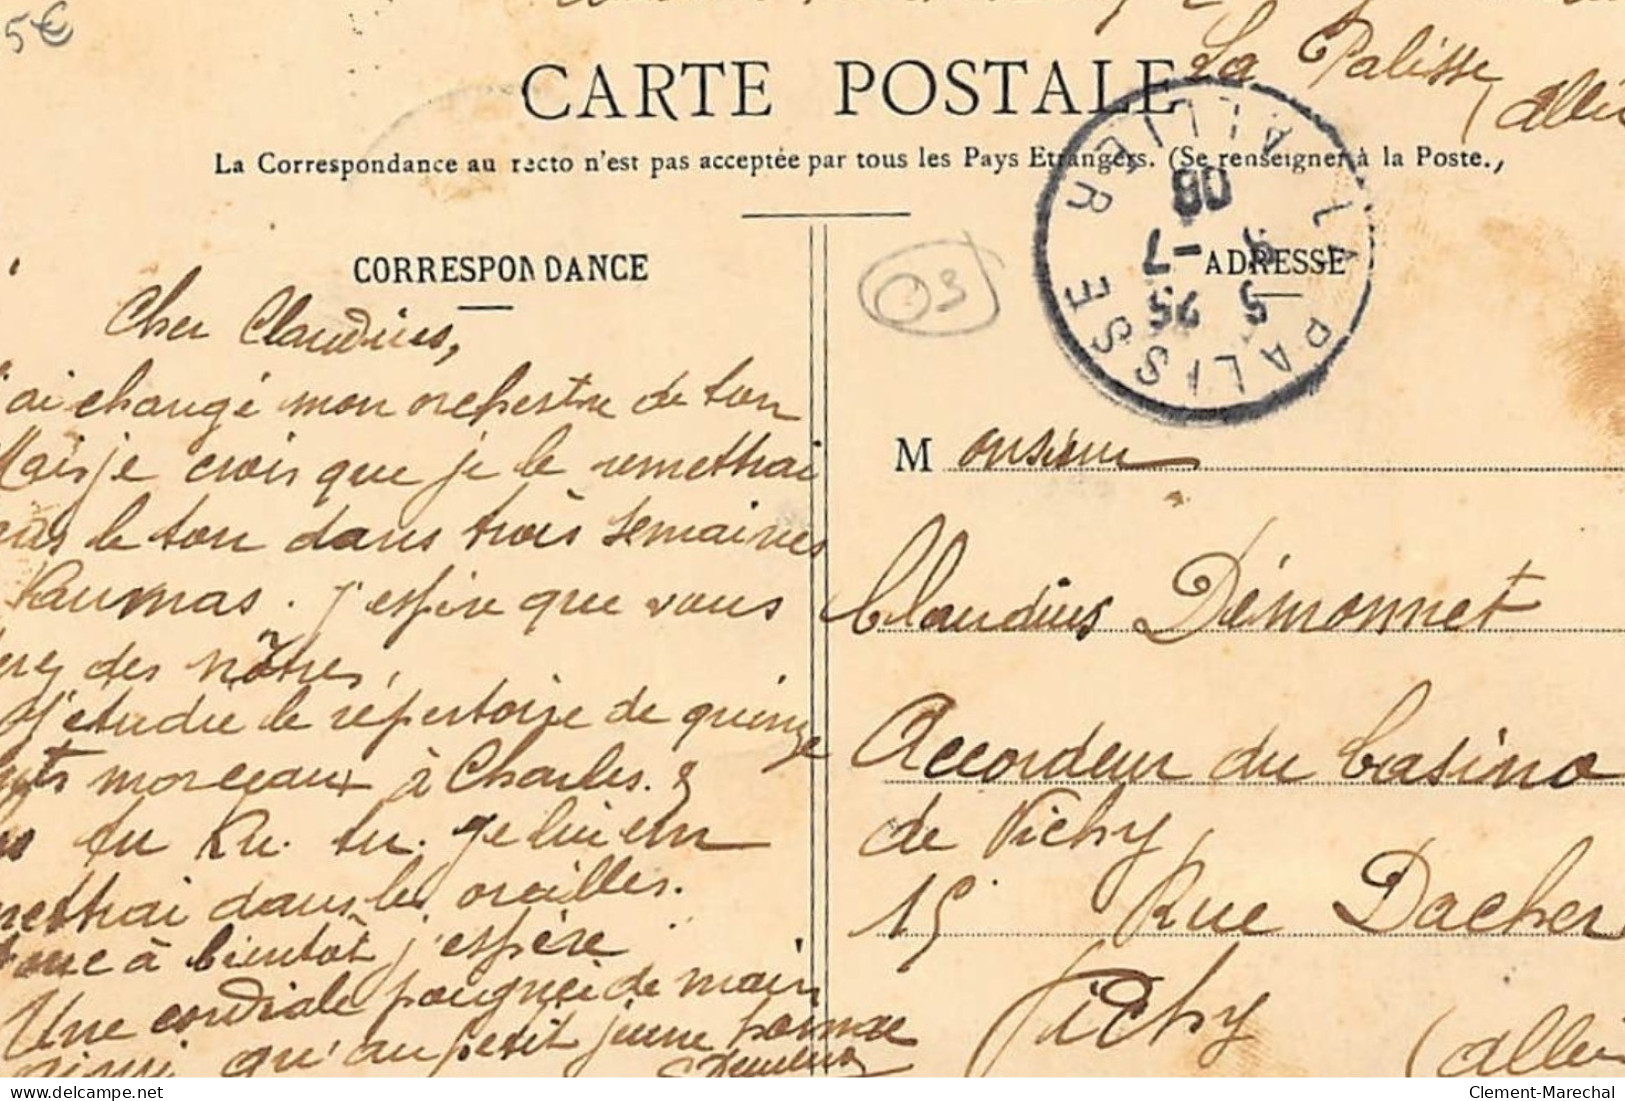 5€
La Palisse
(Allie
CARTE POSTALE
La Correspondance au recto n'est pas acceptée par tous les Pays Etrangers. (Se renseigner à la Poste.,
LA PALISSE ALLIER
5 S
25 -7
08
CORRESPONDANCE
ADRESSE
03
Cher Claudius,
'ai changé mon orchestre de ton
Mais je crois que je le remettrai
le ton dans trois semaines
Laumas. J'espère que vous
des nôtres,
J'étudie le répertoire de quinze
morceaux à Charles. &
tu Ku. tu. je lui en
mettrai dans les oreilles.
à bientôt j'espère
Une cordiale poignée de main
ainsi qu'au petit jeune homme
Monsieur
Claudius Démonnet
Accordeur du Casino
de Vichy
15 Rue Dacher
Vichy
(Allie
Clement-Marechal